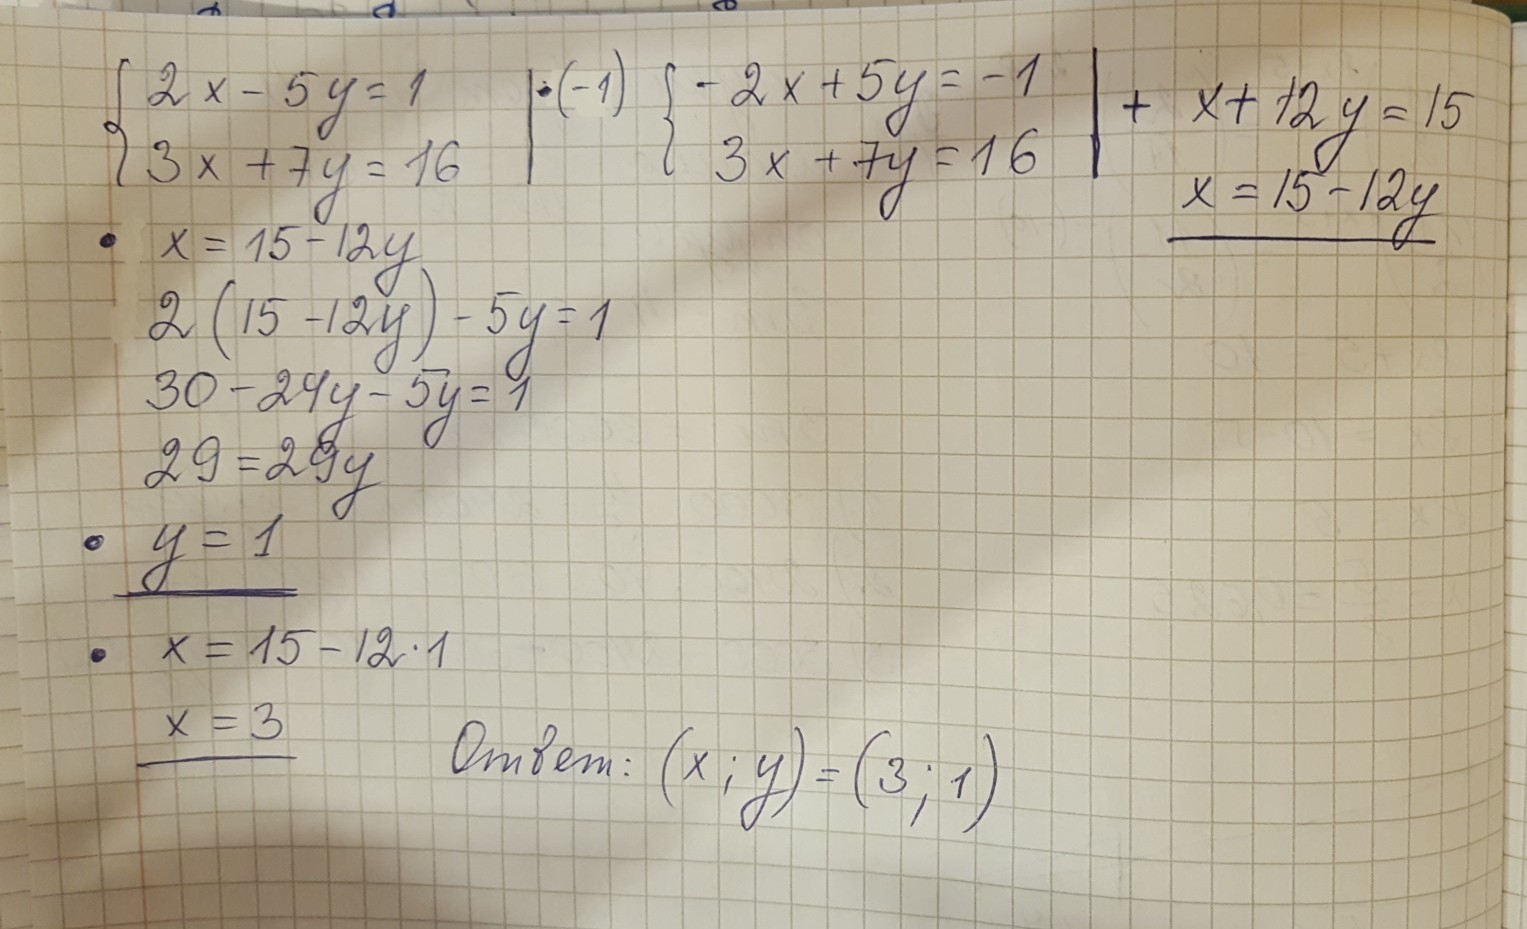 { 2x - 5y = 1 | ·(-1) { -2x + 5y = -1 | + x + 12y = 15
3x + 7y = 16 3x + 7y = 16 x = 15 - 12y
• x = 15 - 12y
2(15 - 12y) - 5y = 1
30 - 24y - 5y = 1
29 = 29y
• y = 1
• x = 15 - 12·1
x = 3
Ответ: (x; y) = (3; 1)